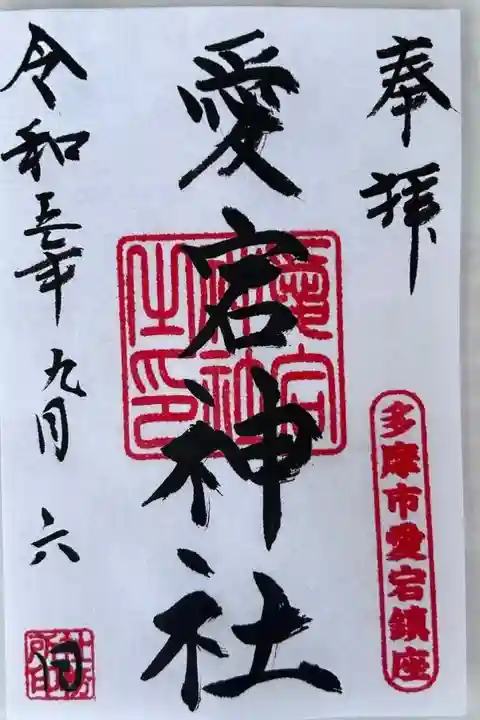 奉拝
多摩市愛宕鎮座
愛宕神社
愛宕神社之印
令和五年九月六日